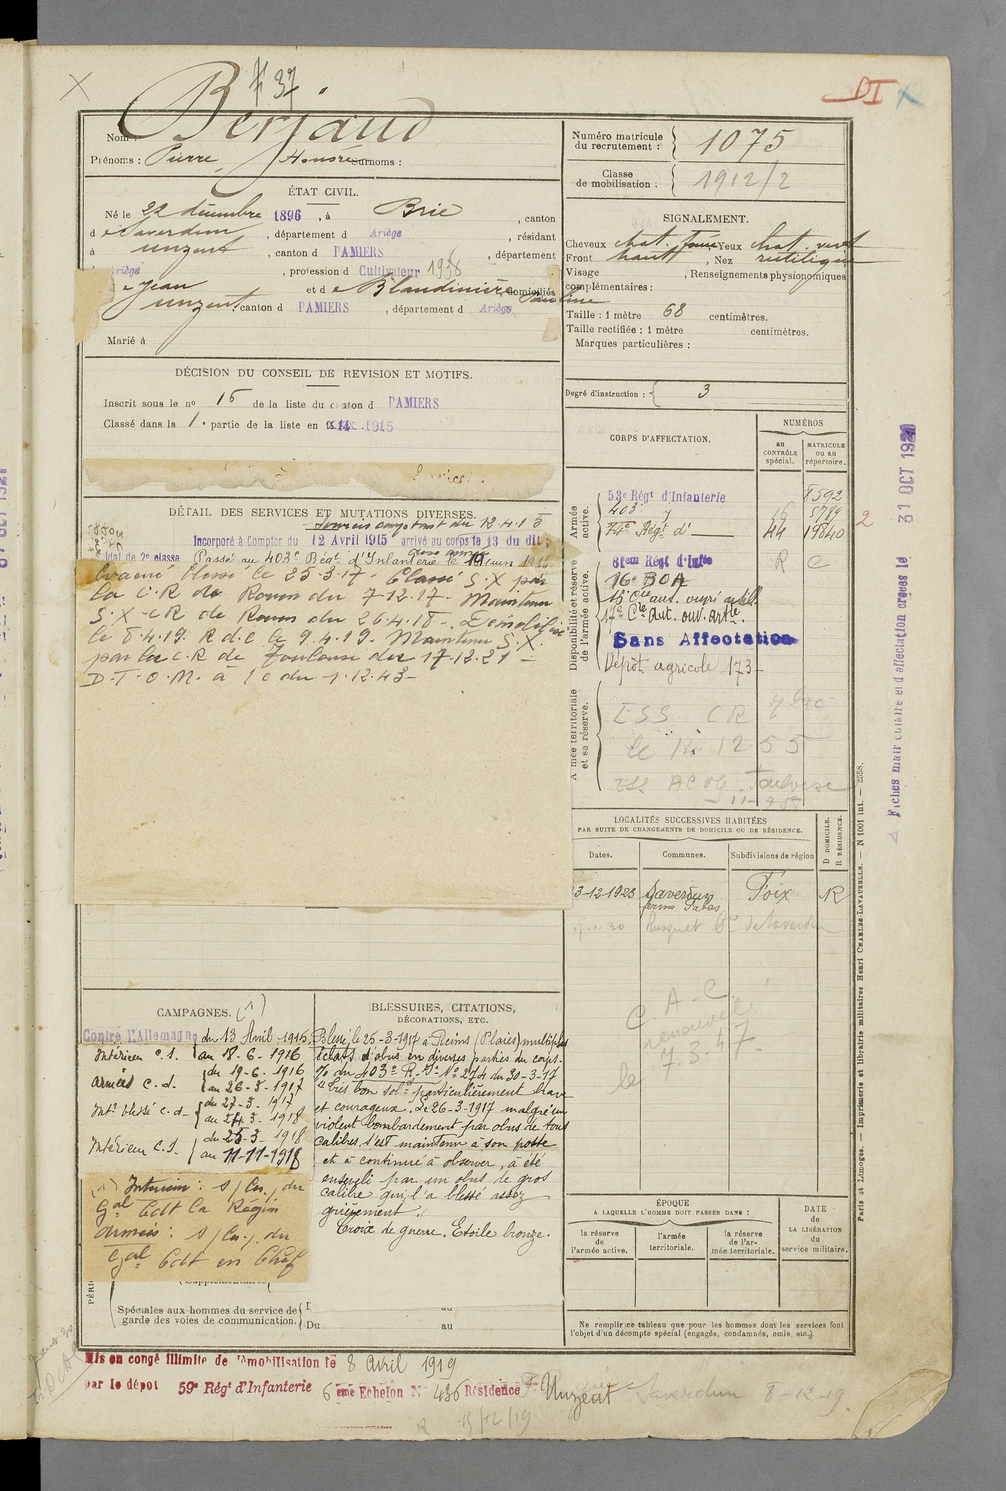 7 37
DI
Nom : Berjaud
Prénoms : Pierre, Honoré Surnoms :
Numéro matricule du recrutement : 1075
Classe de mobilisation : 1912/2
ÉTAT CIVIL.
Né le 22 décembre 1896, à Brie, canton
de Saverdun, département d Ariège, résidant
à Unzent, canton d PAMIERS, département
Ariège, profession d Cultivateur 1938
e Jean et de Blandinière Pauline, domiciliés
Unzent, canton d PAMIERS, département d Ariège
Marié à
SIGNALEMENT.
Cheveux chat. foncé Yeux chat. vert
Front haut, Nez rectiligne
Visage , Renseignements physionomiques
complémentaires :
Taille : 1 mètre 68 centimètres.
Taille rectifiée : 1 mètre centimètres.
Marques particulières :
DÉCISION DU CONSEIL DE REVISION ET MOTIFS.
Inscrit sous le no 16 de la liste du canton d PAMIERS
Classé dans la 1e partie de la liste en 1915
Degré d'instruction : 3
CORPS D'AFFECTATION.
NUMÉROS
au CONTRÔLE spécial.
MATRICULE ou au répertoire.
Armée active.
53e Régt d'Infanterie 8592
403e 16 5789
74e Régt d° 44 19840
2
Disponibilité et réserve de l'armée active.
81em Regt d'Inftie R C
16e BOA
17e Cie Aut. ouv. artie.
Sans Affectation
Dépôt agricole 173
Armée territoriale et sa réserve.
ESS CR
le 14 12 55
Toulouse
DÉTAIL DES SERVICES ET MUTATIONS DIVERSES.
Services comptant du 12.4.15
Incorporé à Compter du 12 Avril 1915 arrivé au corps le 13 du dit ;
soldat de 2e classe Passé au 403e Régt d'Infanterie le 19 juin 1916
Evacué blessé le 25-3-17. Classé S.X par
la C.R de Rouen du 7-12-17. Maintenu
S.X-CR de Rouen du 26.4.18. Démobilisé
le 8.4.19. R.d.C le 9.4.19. Maintenu S.X.
par la C.R de Toulouse du 17.12.21 -
D.T.O.M. à /c du 1.12.43-
LOCALITÉS SUCCESSIVES HABITÉES
PAR SUITE DE CHANGEMENTS DE DOMICILE OU DE RÉSIDENCE.
Dates. Communes. Subdivisions de région D DOMICILE. R RÉSIDENCE.
3-12-1928 Saverdun Foix R
C. A. C.
renouvelé
le 7.3.47-
CAMPAGNES. (1)
Contre l'Allemagne du 13 Avril 1915,
Intérieur c.s. au 18-6-1916
Armées c.d. du 19-6-1916
au 26-3-1917
Intr blessé c.d. du 27-3-1917
au 24-3-1918
Intérieur c.s. du 25-3-1918
au 11-11-1918
(1) Intérieur : s/ du
Gal Cdt la Région
Armées : s/ du
Gal Cdt en Chef
BLESSURES, CITATIONS,
DÉCORATIONS, ETC.
Blessé le 25-3-1917 à Reims (Plaies) multiples
éclats d'obus en diverses parties du corps.
% du 403e R.I. No 274 du 30-3-17
"Très bon soldt particulièrement brave
et courageux. Le 26-3-1917 malgré un
violent bombardement par obus de tous
calibres s'est maintenu à son poste
et a continué à observer, a été
enseveli par un obus de gros
calibre qui l'a blessé assez
grièvement".
Croix de guerre. Etoile bronze.
Spéciales aux hommes du service de garde des voies de communication.
Du au
ÉPOQUE
A LAQUELLE L'HOMME DOIT PASSER DANS :
la réserve de l'armée active.
l'armée territoriale.
la réserve de l'armée territoriale.
DATE de LA LIBÉRATION du service militaire.
Ne remplir ce tableau que pour les hommes dont les services font
l'objet d'un décompte spécial (engagés, condamnés, omis, etc.)
Mis en congé illimité de démobilisation le 8 Avril 1919
par le dépôt 59e Régt d'Infanterie 6ème Echelon N° 436 Résidence Unzent Saverdun 8-12-19.
R 15/12/19
Fiches matriculaire et d'affectation créées le 31 OCT 1921
Paris et Limoges. — Imprimerie et librairie militaires Henri CHARLES-LAVAUZELLE. — N 1001 int. — 2558.